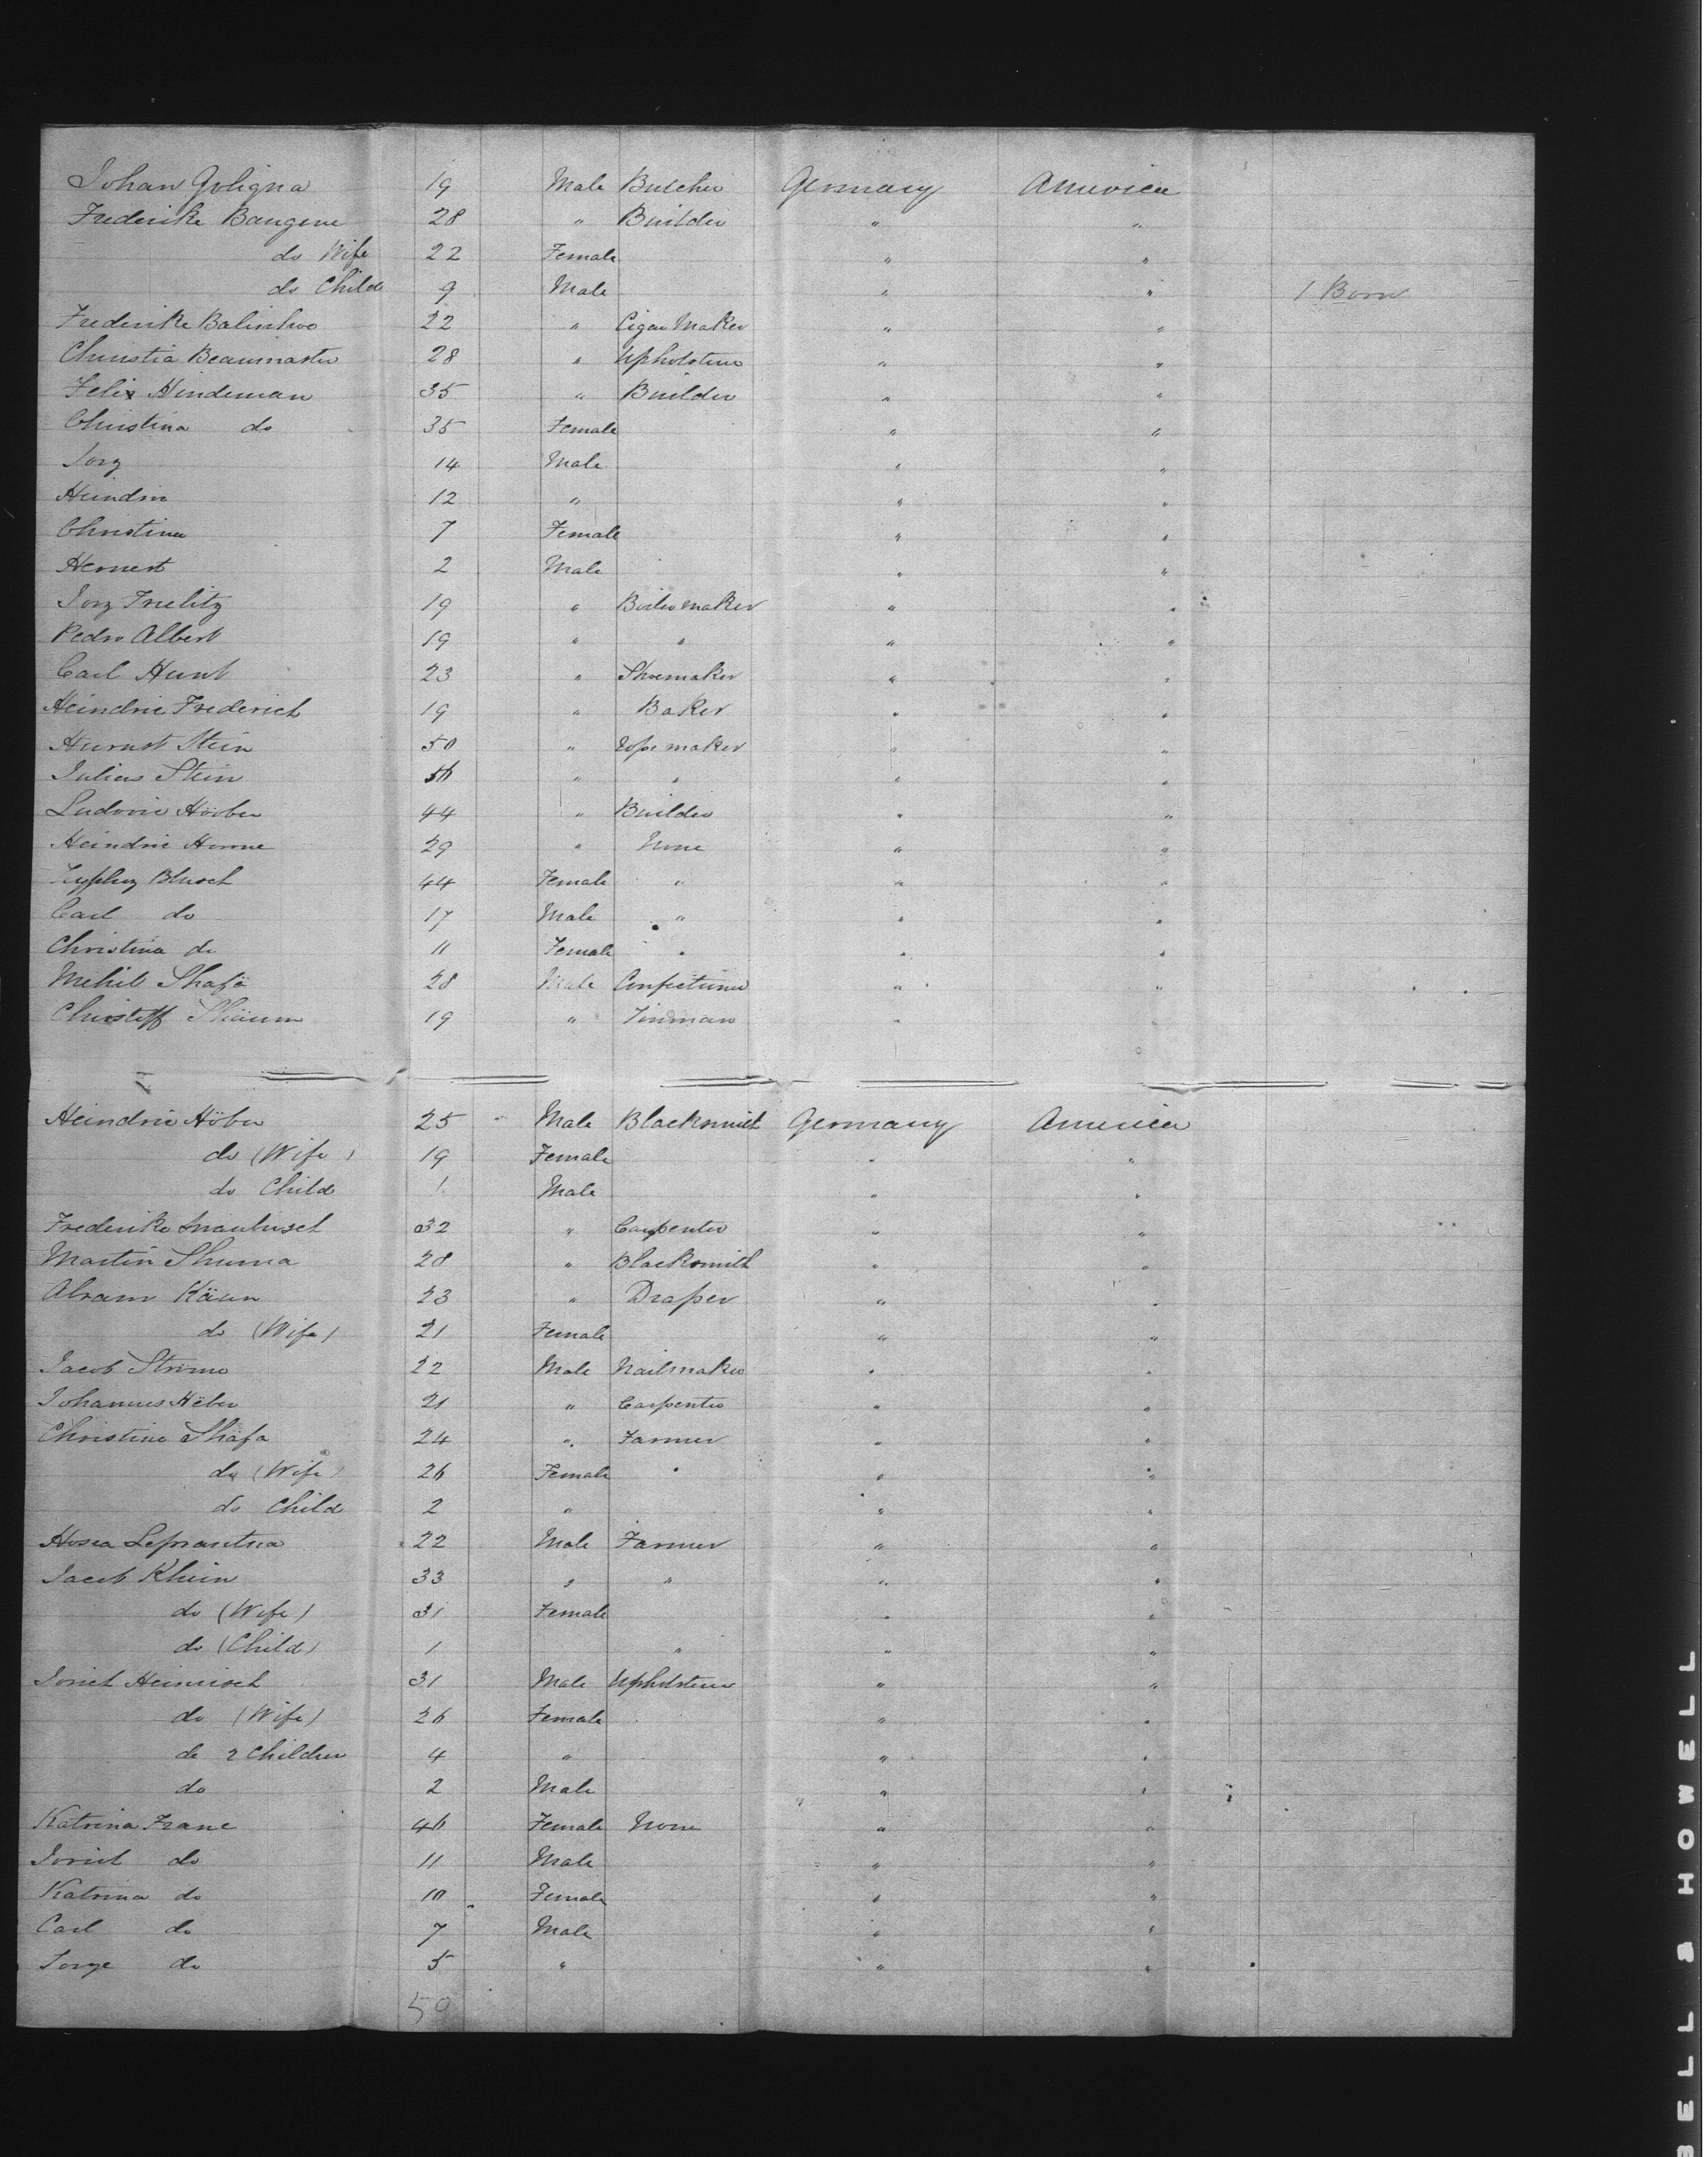 Johan Goligna 19 Male Butcher Germany America
Frederike Baugene 28 " Builder " "
do Wife 22 Female " "
do Child 9 Male " " 1 Born
Frederike Balinhoo 22 " Cigar Maker " "
Christia Beaumaster 28 " Upholsterer " "
Felix Hindeman 35 " Builder " "
Christina do 35 Female " "
Jorg 14 Male " "
Heindric 12 " " "
Christina 7 Female " "
Hernest 2 Male " "
Jorg Frielitz 19 " Boiler maker " "
Pedro Albert 19 " " " "
Carl Hunt 23 " Shoemaker " "
Heindric Frederich 19 " Baker " "
Hurnst Stein 50 " Rope maker " "
Julius Stein 56 " " " "
Ludovic Höober 44 " Builder " "
Heindric Horone 29 " None " "
Blusch 44 Female " " "
Carl do 17 Male " " "
Christina do 11 Female " " "
Mehil Shafö 28 Male Confectioner " "
Christoff Shäum 19 " Tinman "
Heindric Höber 25 Male Blacksmith Germany America
do (Wife) 19 Female " "
do Child 1 Male " "
Frederike 32 " Carpenter " "
Martin Shuma 28 " Blacksmith " "
Abram Käun 23 " Draper " "
do (Wife) 21 Female " "
Jacob Stromo 22 Male Nailmaker " "
Johannes Hëber 21 " Carpenter " "
Christine Shafa 24 " Farmer " "
do (Wife) 26 Female " " "
do Child 2 " " "
Hosea Leprantna 22 Male Farmer " "
Jacob Rhein 33 " " " "
do (Wife) 31 Female " "
do (Child) 1 " " "
Jorich Heinrisch 31 Male Upholsterer " "
do (Wife) 26 Female " "
do 2 Children 4 " " "
do 2 Male " "
Katrina Franc 46 Female None " "
Jorich do 11 Male " "
Katrina do 10 Female " "
Carl do 7 Male " "
Jorge do 5 " " "
50
BELL & HOWELL